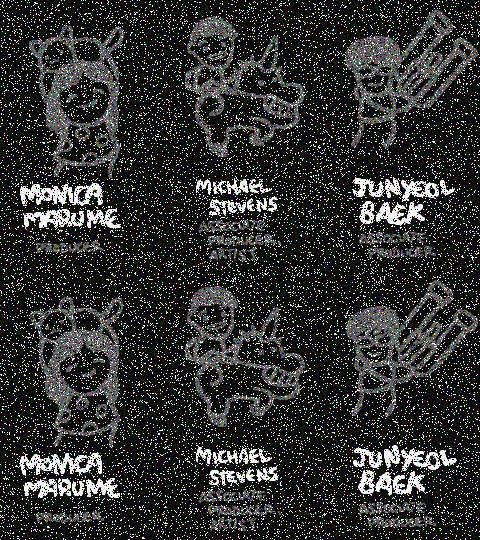 MONICA MARUME
PRODUCER
MICHAEL STEVENS
ASSOCIATE PRODUCER
ARTIST
JUNYEOL BAEK
ASSOCIATE PRODUCER
MONICA MARUME
PRODUCER
MICHAEL STEVENS
ASSOCIATE PRODUCER
ARTIST
JUNYEOL BAEK
ASSOCIATE PRODUCER